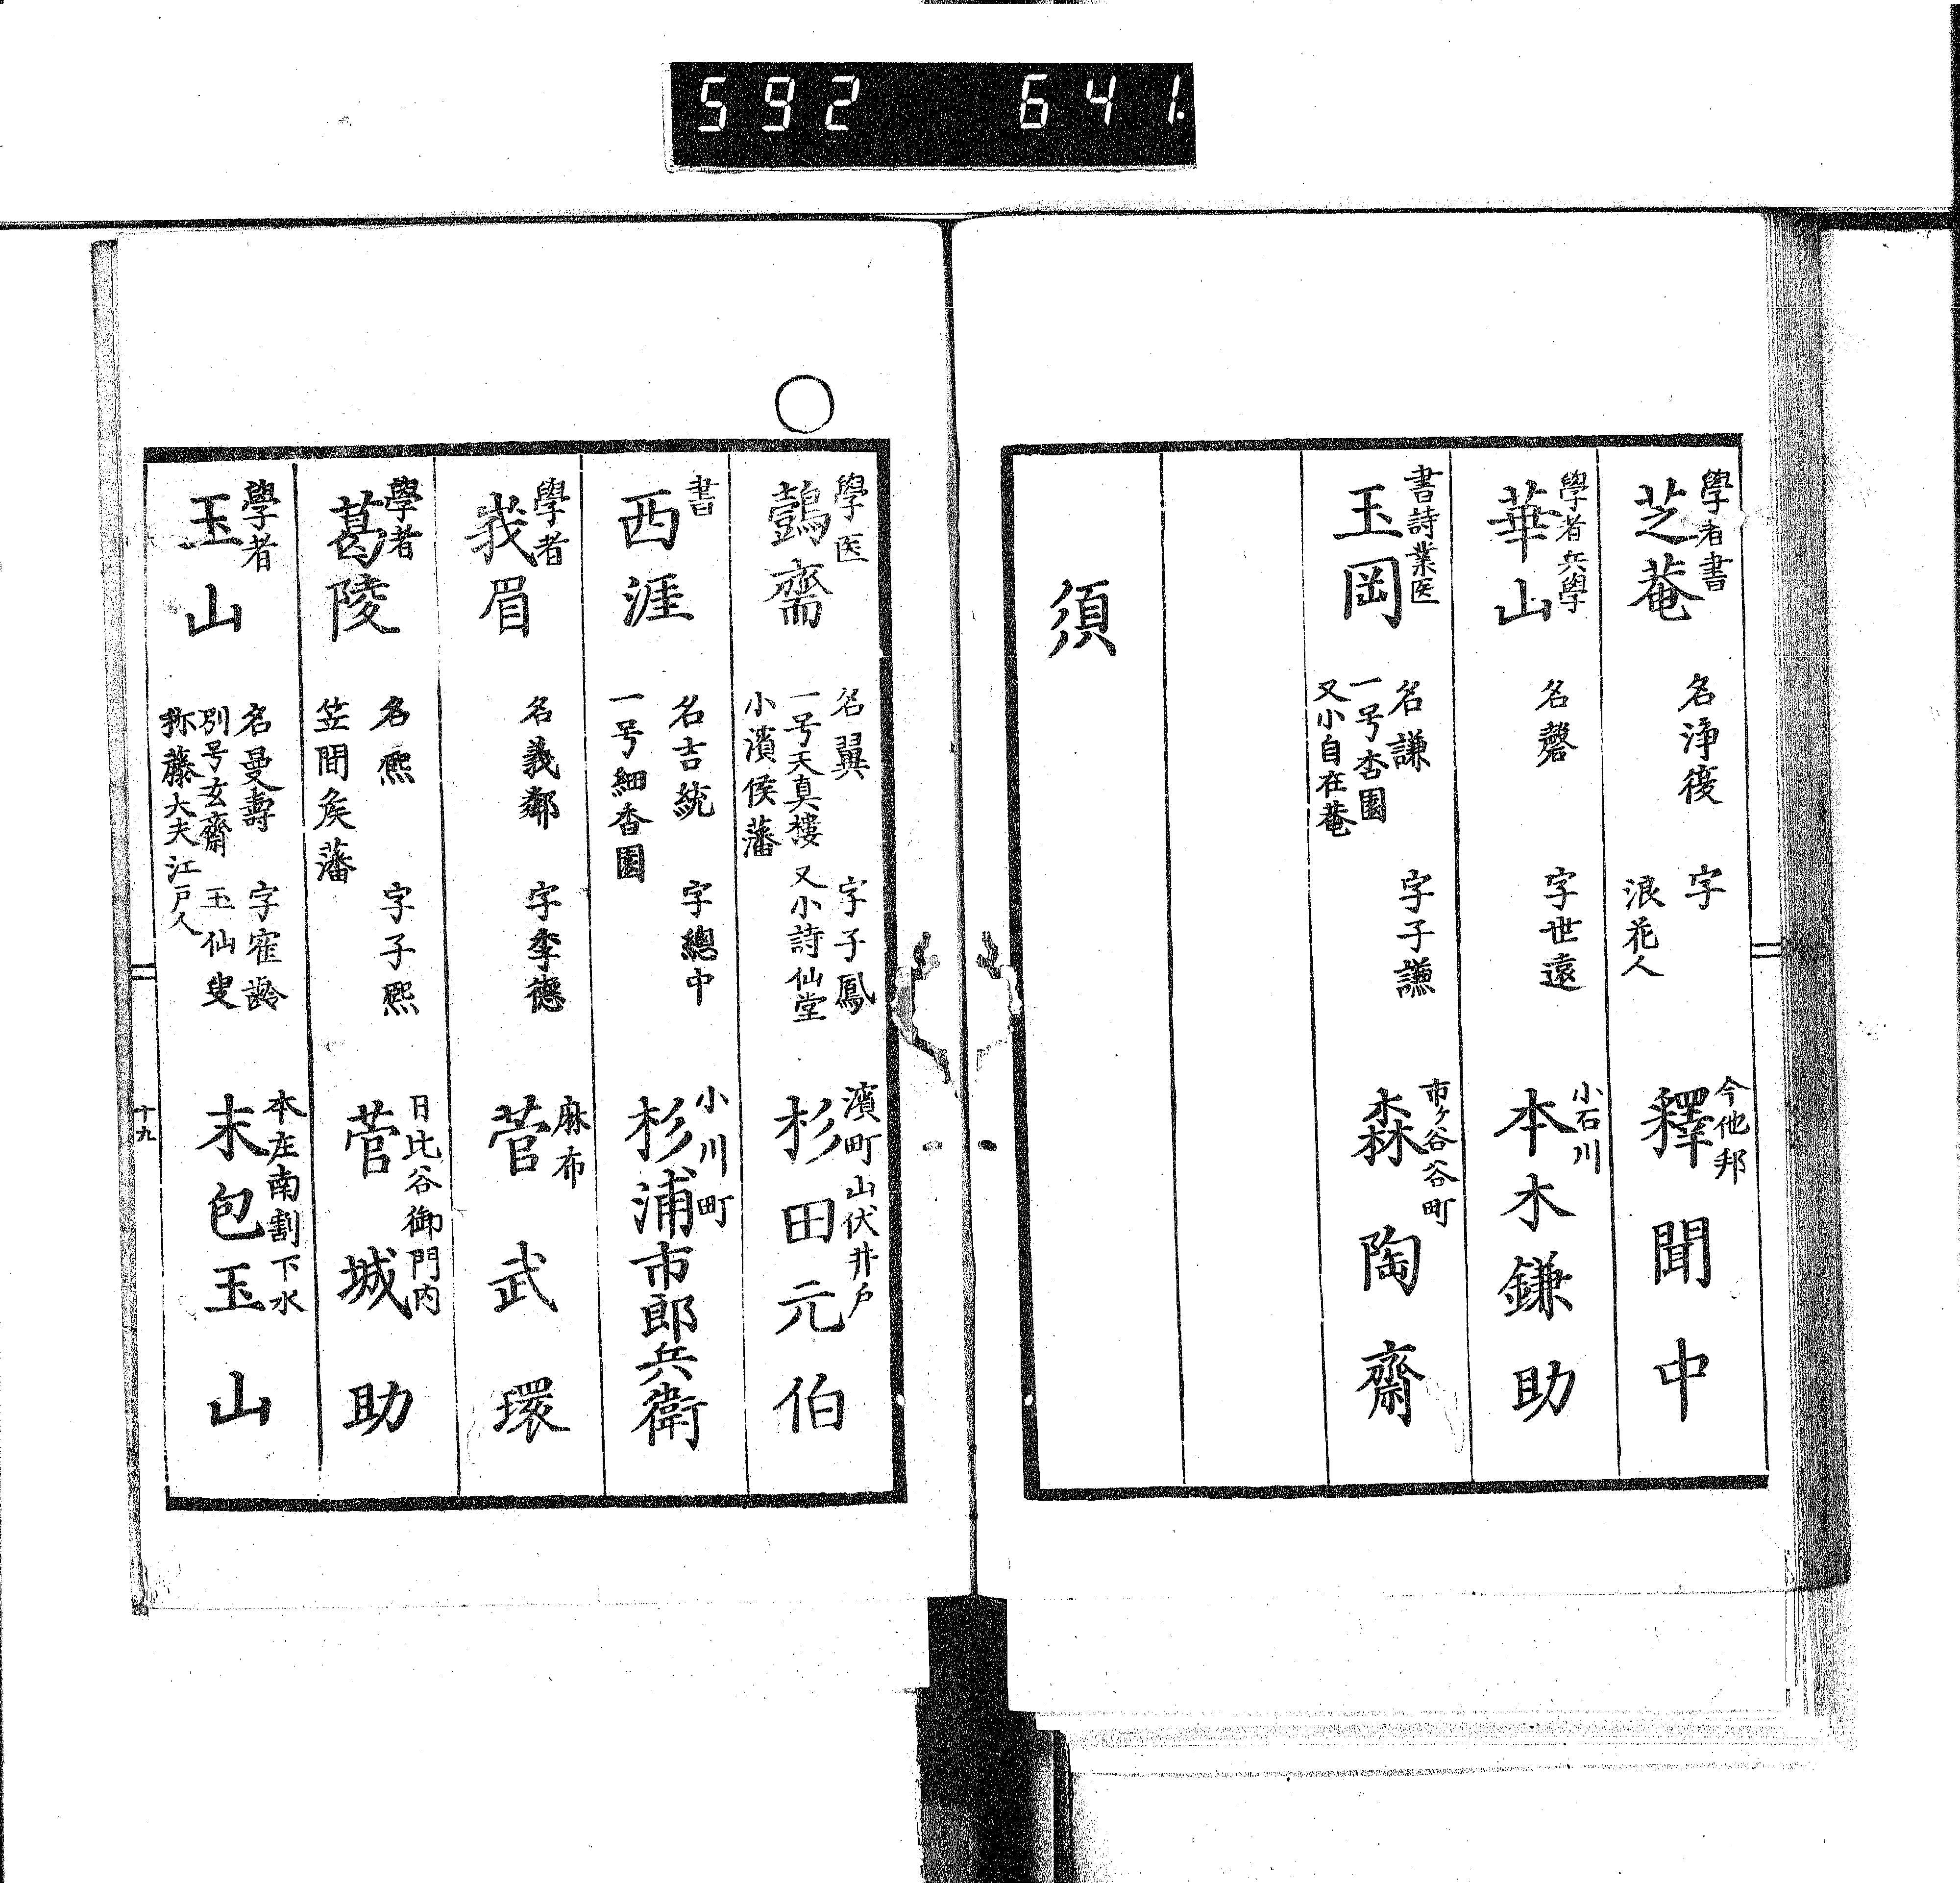 592 641.
學者書
芝菴
名淨復 字
浪花人
今他邦
釋聞中
學者兵學
華山
名磬 字世遠
小石川
本木鎌助
書詩業医
玉岡
名謙 字子謙
一号杏園
又小自在菴
市ヶ谷谷町
森陶齋
須
學医
鷧齋
名翼 字子鳳
一号天真樓 又小詩仙堂
小濱侯藩
濱町山伏井戸
杉田元伯
書
西涯
名吉統 字總中
一号細香園
小川町
杉浦市郎兵衛
學者
我眉
名義鄰 字李德
麻布
菅武環
學者
葛陵
名熙 字子熙
笠間矦藩
日比谷御門内
菅城助
學者
玉山
名曼壽 字寉齡
別号玄齋 玉仙叟
称藤大夫江戸人
本庄南割下水
末包玉山
十九